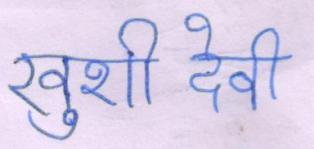 खुशी देवी